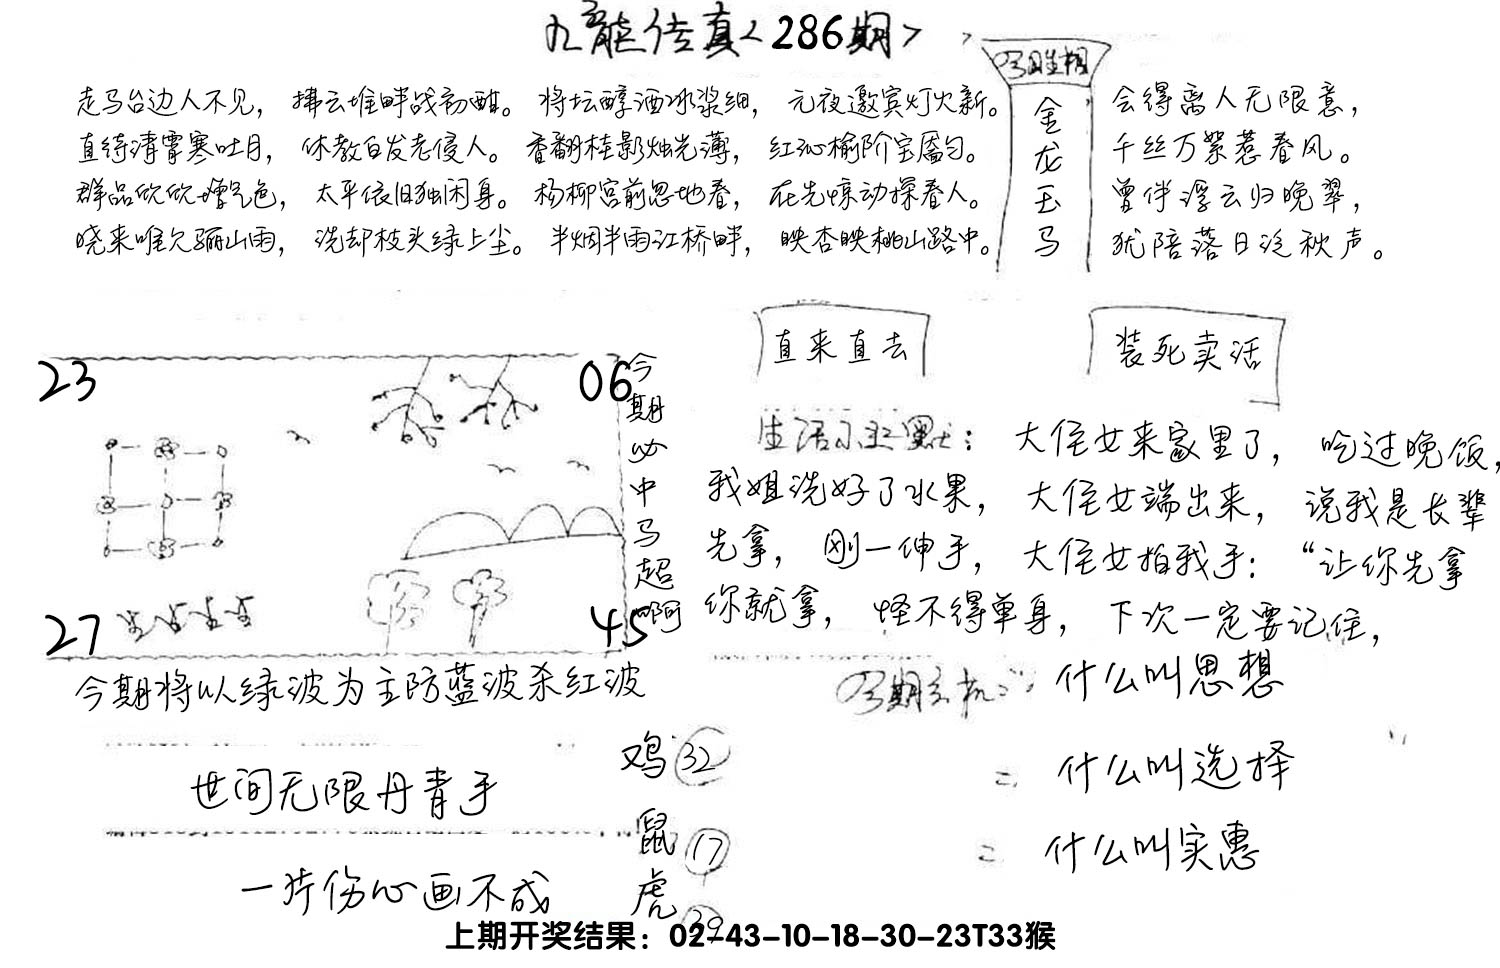 九龙传真<286期>
走马台边人不见，拂云堆畔战初酣。将坛醇酒冰浆细，元夜邀宾灯火新。
直待清霄寒吐月，休教白发老侵人。香翻桂影烛光薄，红沁榆阶宝靥匀。
群品欣欣增气色，太平依旧独闲身。杨柳宫前忽地春，在先惊动探春人。
晓来唯欠骊山雨，洗却枝头绿上尘。半烟半雨江桥畔，映杏映桃山路中。
今期生相
金龙玉马
会得离人无限意，
千丝万絮惹春风。
曾伴浮云归晚翠，
犹陪落日泛秋声。
23
06
27
45
今期必中马超啊
今期将以绿波为主防蓝波杀红波
世间无限丹青手
一片伤心画不成
鸡 32
鼠 17
虎 39
直来直去
装死卖活
生活小幽默：大侄女来家里了，吃过晚饭，
我姐洗好了水果，大侄女端出来，说我是长辈
先拿，刚一伸手，大侄女拍我手：“让你先拿
你就拿，怪不得单身，下次一定要记住，
今期玄机：什么叫思想
= 什么叫选择
= 什么叫实惠
上期开奖结果：02-43-10-18-30-23T33猴